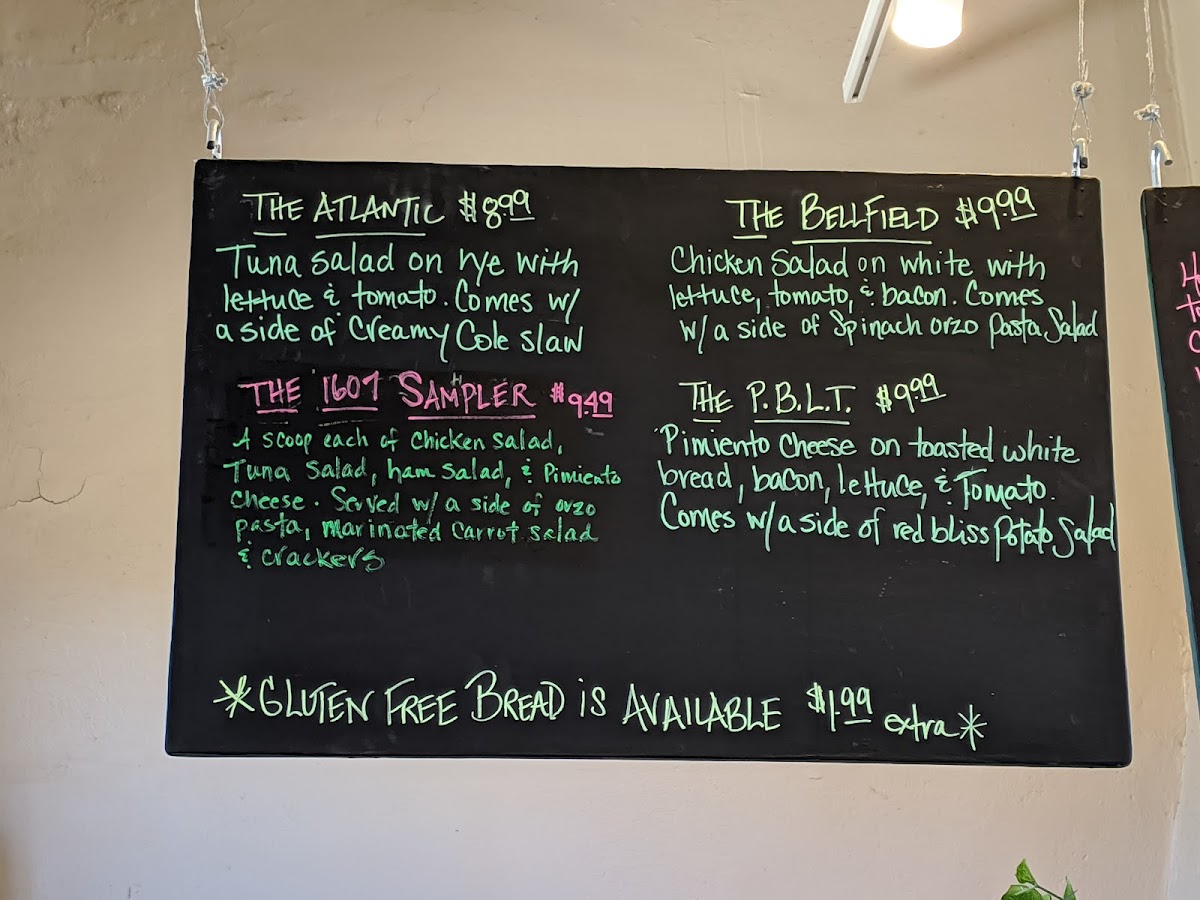 THE ATLANTIC $8.99
Tuna salad on rye with
lettuce & tomato. Comes w/
a side of Creamy Cole slaw
THE 1607 SAMPLER $9.49
A scoop each of chicken salad,
Tuna salad, ham salad, & Pimiento
cheese. Served w/ a side of orzo
pasta, marinated carrot salad
& crackers
THE BELLFIELD $9.99
Chicken Salad on white with
lettuce, tomato, & bacon. Comes
w/ a side of Spinach orzo pasta Salad
THE P.B.L.T. $9.99
Pimiento cheese on toasted white
bread, bacon, lettuce, & Tomato.
Comes w/ a side of red bliss Potato Salad
*GLUTEN FREE BREAD iS AVAILABLE $1.99 extra*